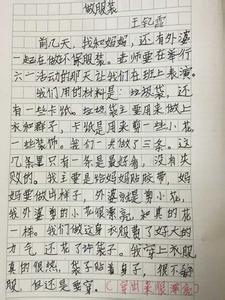 做服装
前几天，我和妈妈，还有外婆
一起在做环保服装。老师要在举行
六一活动的那天让我们在班上表演。
我们用的材料是：垃圾袋，还
有一些卡纸。垃圾袋主要用来做上
衣和裙子，卡纸是用来剪一些小花
一些装饰。我们一共做了三条。这
几条里只有一条是最好看，没有失
败的。我主要是给妈妈贴胶带，妈
妈要做出样子，外婆就是剪小花，
我外婆剪的小花很漂亮，和真的花
一样。我们做这身衣服费了好大的
力气，还花了袋子。我穿上衣服
真的很热，袋子贴着身子，很不舒
服，但还是要穿。(穿出来很漂亮)